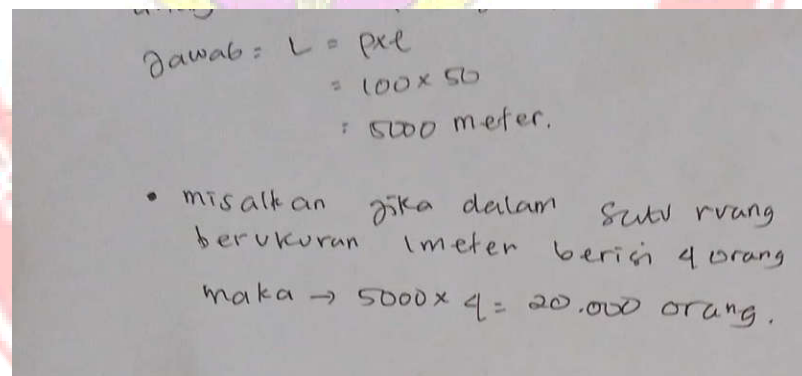 Jawab = L = pxl
= 100 x 50
= 5000 meter.
• misalkan jika dalam satu ruang
berukuran 1 meter berisi 4 orang
maka → 5000 x 4 = 20.000 orang.